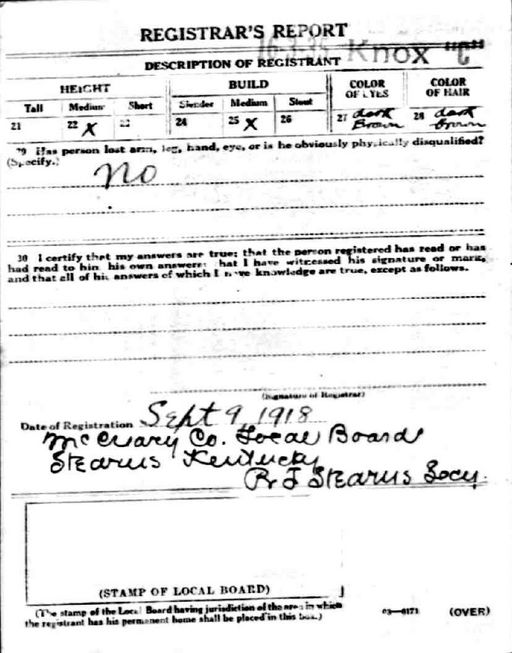 REGISTRAR'S REPORT
16-3-35 Knox "C"
DESCRIPTION OF REGISTRANT
HEIGHT BUILD COLOR OF EYES COLOR OF HAIR
Tall Medium Short Slender Medium Stout
21 22 X 23 24 25 X 26 27 dark Brown 28 dark brown
29 Has person lost arm, leg, hand, eye, or is he obviously physically disqualified?
(Specify.)
no
30 I certify that my answers are true; that the person registered has read or has
had read to him his own answers; that I have witnessed his signature or mark,
and that all of his answers of which I have knowledge are true, except as follows.
(Signature of Registrar)
Date of Registration Sept 9 1918
McCreary Co. Local Board
Stearns Kentucky
R F Stearns Secy.
(STAMP OF LOCAL BOARD)
(The stamp of the Local Board having jurisdiction of the area in which
the registrant has his permanent home shall be placed in this box.)
03—6171 (OVER)